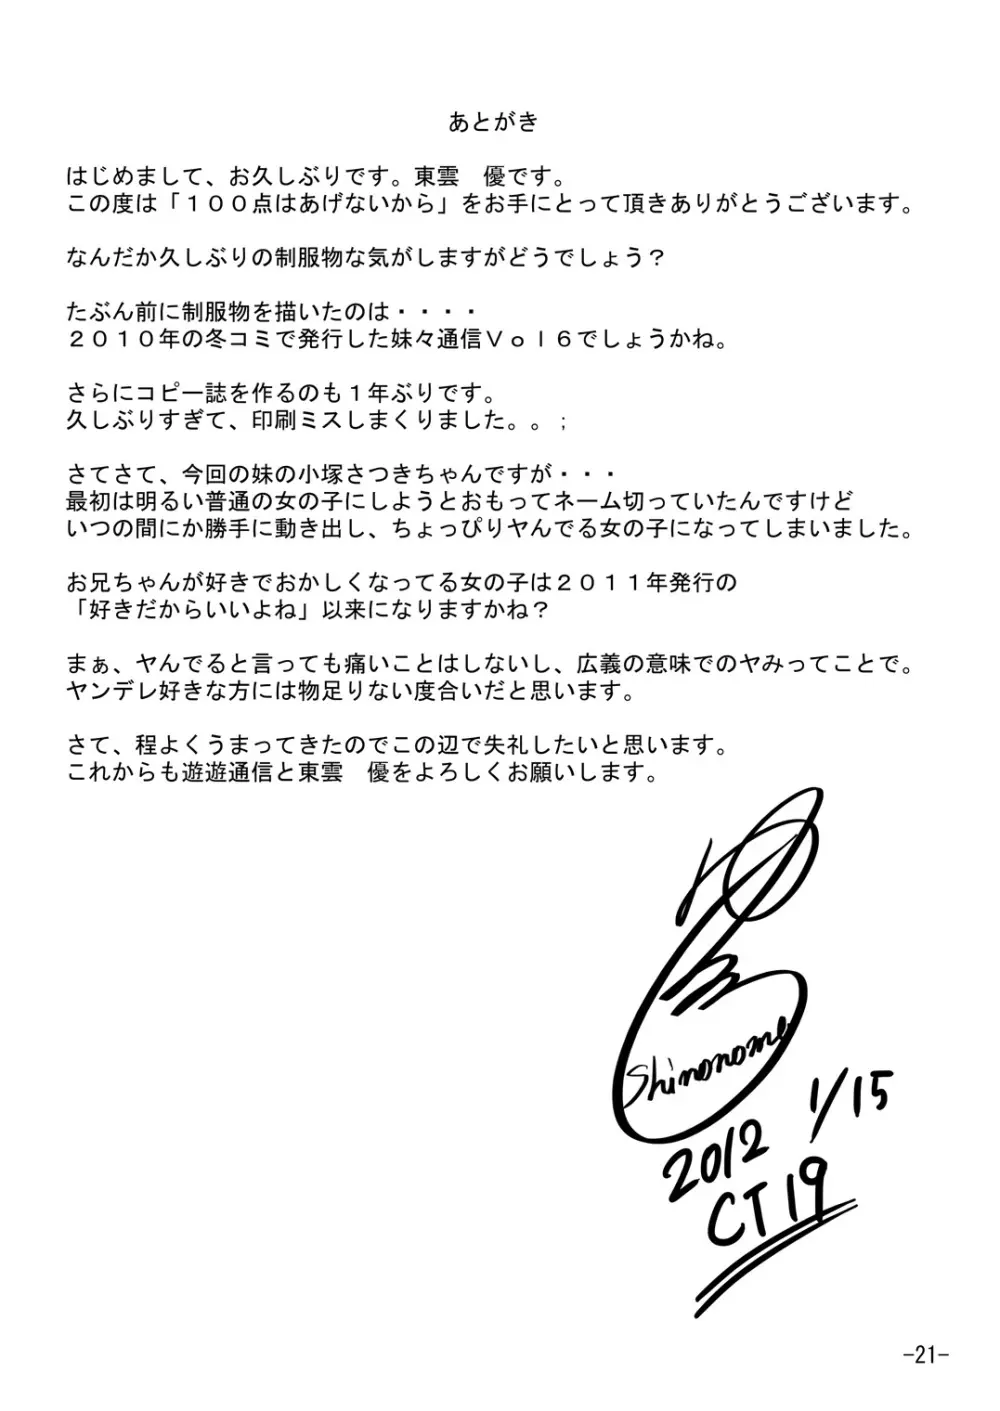 あとがき
はじめまして、お久しぶりです。東雲　優です。
この度は「１００点はあげないから」をお手にとって頂きありがとうございます。
なんだか久しぶりの制服物な気がしますがどうでしょう？
たぶん前に制服物を描いたのは・・・・
２０１０年の冬コミで発行した妹々通信Ｖｏｌ６でしょうかね。
さらにコピー誌を作るのも１年ぶりです。
久しぶりすぎて、印刷ミスしまくりました。。；
さてさて、今回の妹の小塚さつきちゃんですが・・・
最初は明るい普通の女の子にしようとおもってネーム切っていたんですけど
いつの間にか勝手に動き出し、ちょっぴりヤんでる女の子になってしまいました。
お兄ちゃんが好きでおかしくなってる女の子は２０１１年発行の
「好きだからいいよね」以来になりますかね？
まぁ、ヤんでると言っても痛いことはしないし、広義の意味でのヤみってことで。
ヤンデレ好きな方には物足りない度合いだと思います。
さて、程よくうまってきたのでこの辺で失礼したいと思います。
これからも遊遊通信と東雲　優をよろしくお願いします。
Shinonome
2012 1/15
CT19
-21-